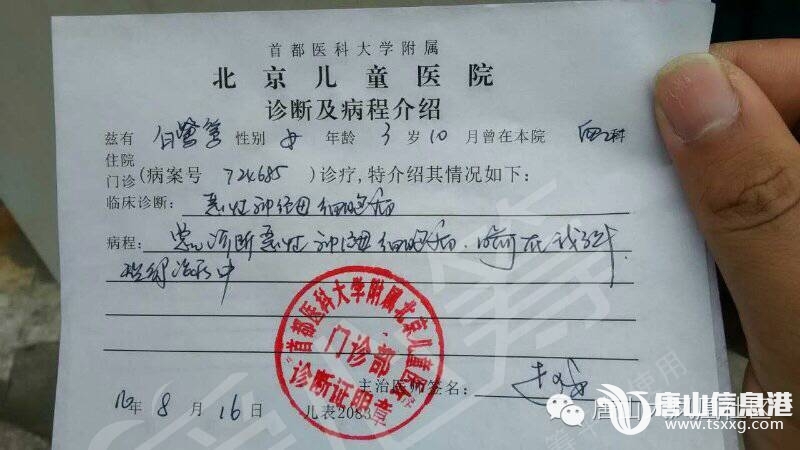 首都医科大学附属
北京儿童医院
诊断及病程介绍
兹有 白鹭 性别 女 年龄 3 岁 10 月曾在本院 血液科
住院
门诊 (病案号 724685 ) 诊疗,特介绍其情况如下:
临床诊断: 恶性神经母细胞瘤
病程: 患儿诊断恶性神经母细胞瘤,
治疗中
首都医科大学附属北京儿童医院
门诊部
诊断证明章
主治医师签名:
年 8 月 16 日 儿表2083
唐山信息港
www.tsxxg.com